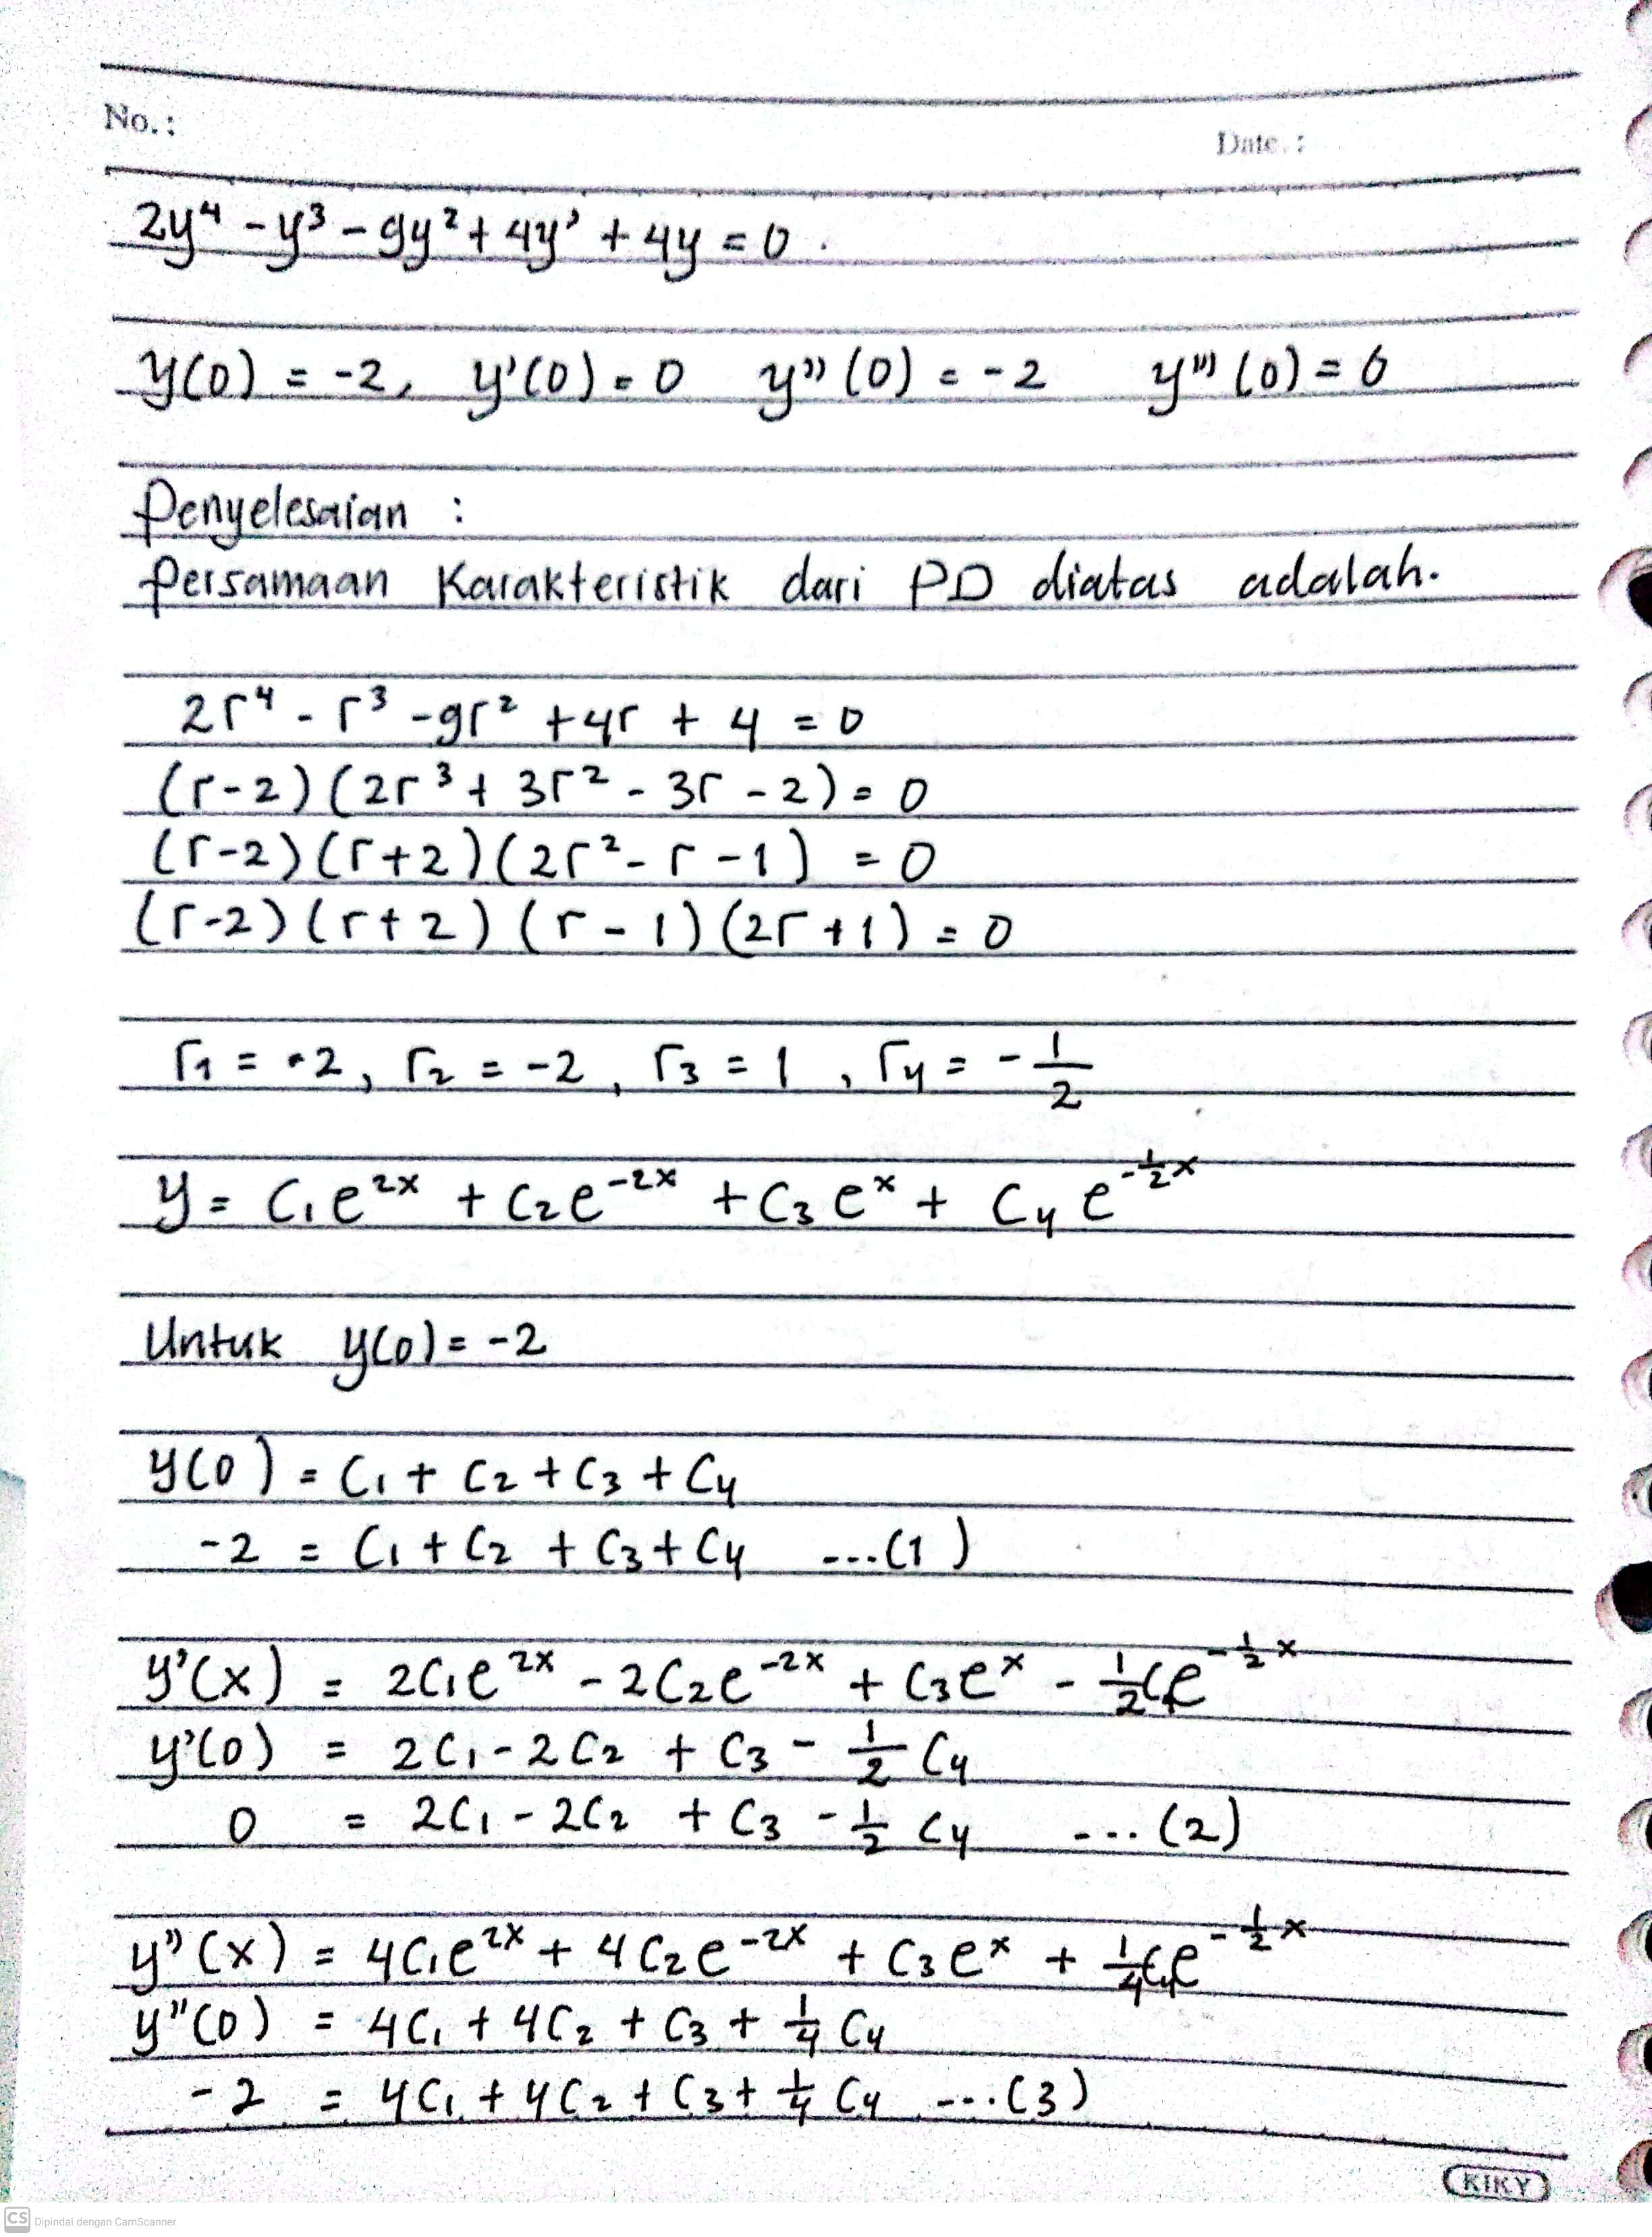 No.:
Date.:
2y⁴ - y³ - 9y² + 4y' + 4y = 0.
y(0) = -2, y'(0) = 0 y''(0) = -2 y'''(0) = 0
Penyelesaian :
Persamaan Karakteristik dari PD diatas adalah.
2r⁴ - r³ - 9r² + 4r + 4 = 0
(r-2)(2r³ + 3r² - 3r - 2) = 0
(r-2)(r+2)(2r² - r - 1) = 0
(r-2)(r+2)(r - 1)(2r + 1) = 0
r₁ = -2, r₂ = -2, r₃ = 1, r₄ = -1/2
y = C₁e²ˣ + C₂e⁻²ˣ + C₃eˣ + C₄e^(-1/2 x)
Untuk y(0) = -2
y(0) = C₁ + C₂ + C₃ + C₄
-2 = C₁ + C₂ + C₃ + C₄ ...(1)
y'(x) = 2C₁e²ˣ - 2C₂e⁻²ˣ + C₃eˣ - 1/2 C₄e^(-1/2 x)
y'(0) = 2C₁ - 2C₂ + C₃ - 1/2 C₄
0 = 2C₁ - 2C₂ + C₃ - 1/2 C₄ ...(2)
y''(x) = 4C₁e²ˣ + 4C₂e⁻²ˣ + C₃eˣ + 1/4 C₄e^(-1/2 x)
y''(0) = 4C₁ + 4C₂ + C₃ + 1/4 C₄
-2 = 4C₁ + 4C₂ + C₃ + 1/4 C₄ ...(3)
KIKY
CS Dipindai dengan CamScanner